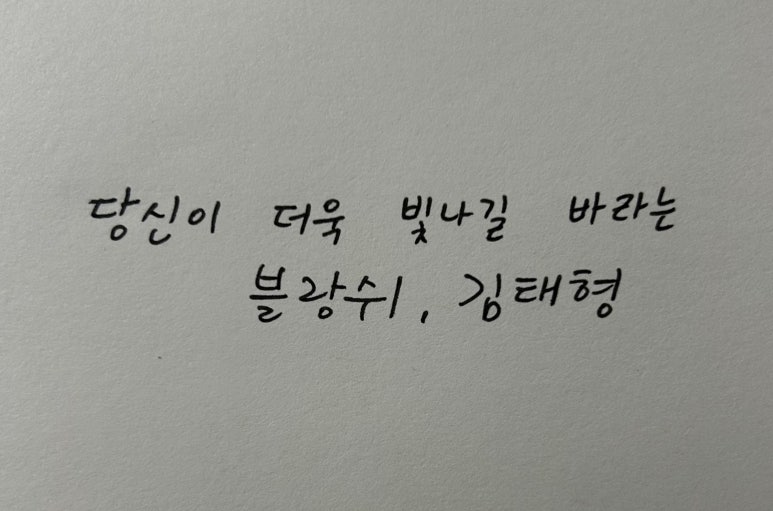 당신이 더욱 빛나길 바라는
블랑쉬, 김태형